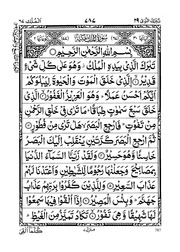 تَبٰرَكَ الَّذِيْ ٢٩
بِسْمِ اللهِ الرَّحْمٰنِ الرَّحِيْمِ
تَبٰرَكَ الَّذِيْ بِيَدِهِ الْمُلْكُ وَهُوَ عَلٰى كُلِّ شَيْءٍ
قَدِيْرُ الَّذِيْ خَلَقَ الْمَوْتَ وَالْحَيٰوةَ لِيَبْلُوَكُمْ
اَيُّكُمْ اَحْسَنُ عَمَلًا وَهُوَ الْعَزِيْزُ الْغَفُوْرُ الَّذِيْ
خَلَقَ سَبْعَ سَمٰوٰتٍ طِبَاقًا مَا تَرٰى فِيْ خَلْقِ الرَّحْمٰنِ
مِنْ تَفٰوُتٍ فَارْجِعِ الْبَصَرَ هَلْ تَرٰى مِنْ فُطُوْرٍ
ثُمَّ ارْجِعِ الْبَصَرَ كَرَّتَيْنِ يَنْقَلِبْ اِلَيْكَ الْبَصَرُ
خَاسِئًا وَّهُوَ حَسِيْرٌ وَلَقَدْ زَيَّنَّا السَّمَاءَ الدُّنْيَا
بِمَصَابِيْحَ وَجَعَلْنٰهَا رُجُوْمًا لِّلشَّيٰطِيْنِ وَاَعْتَدْنَا لَهُمْ
عَذَابَ السَّعِيْرِ وَلِلَّذِيْنَ كَفَرُوْا بِرَبِّهِمْ عَذَابُ
جَهَنَّمَ وَبِئْسَ الْمَصِيْرُ اِذَا اُلْقُوْا فِيْهَا سَمِعُوْا
لَهَا شَهِيْقًا وَّهِيَ تَفُوْرُ تَكَادُ تَمَيَّزُ مِنَ الْغَيْظِ
كُلَّمَا اُلْقِيَ